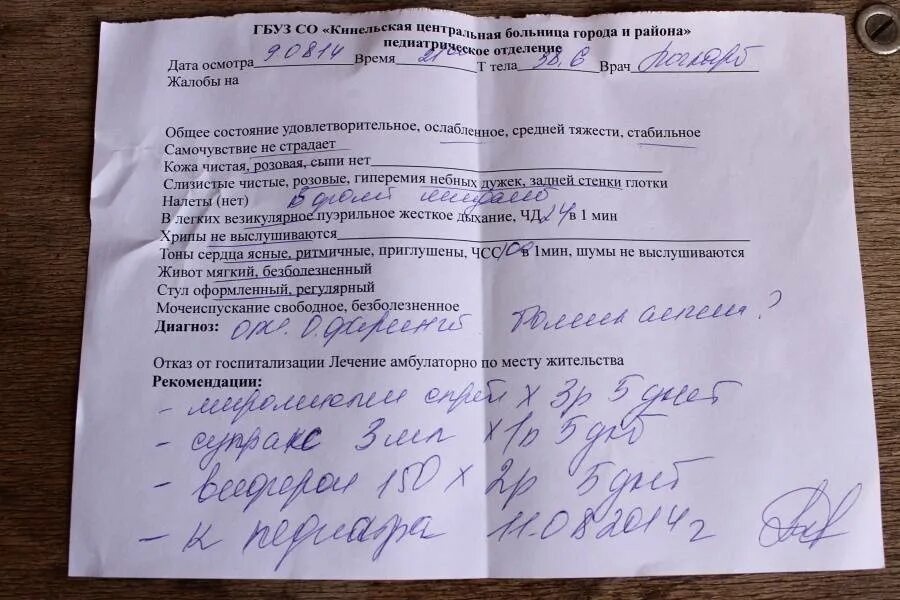 ГБУЗ СО «Кинельская центральная больница города и района»
педиатрическое отделение
Дата осмотра 9 08 14 Время 21 00 Т тела 38,6 Врач
Жалобы на
Общее состояние удовлетворительное, ослабленное, средней тяжести, стабильное
Самочувствие не страдает
Кожа чистая, розовая, сыпи нет
Слизистые чистые, розовые, гиперемия небных дужек, задней стенки глотки
Налеты (нет)
В легких везикулярное пуэрильное жесткое дыхание, ЧД 24 в 1 мин
Хрипы не выслушиваются
Тоны сердца ясные, ритмичные, приглушены, ЧСС 100 в 1мин, шумы не выслушиваются
Живот мягкий, безболезненный
Стул оформленный, регулярный
Мочеиспускание свободное, безболезненное
Диагноз: О. фарингит
Отказ от госпитализации Лечение амбулаторно по месту жительства
Рекомендации:
- спрей х 3р 5 дней
- супракс 3 мл х 1р 5 дней
- виферон 150 х 2р 5 дней
- к педиатру 11.08.2014 г